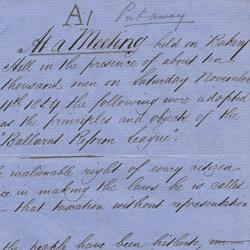 A1
Put away
At a Meeting held on Bakery
Hill in the presence of about ten
thousand men on Saturday November
11th 1854 the following were adopted
as the principles and objects of the
"Ballarat Reform League".
inalienable right of every citizen
ce in making the laws he is called
that taxation without representation
the people have been hitherto